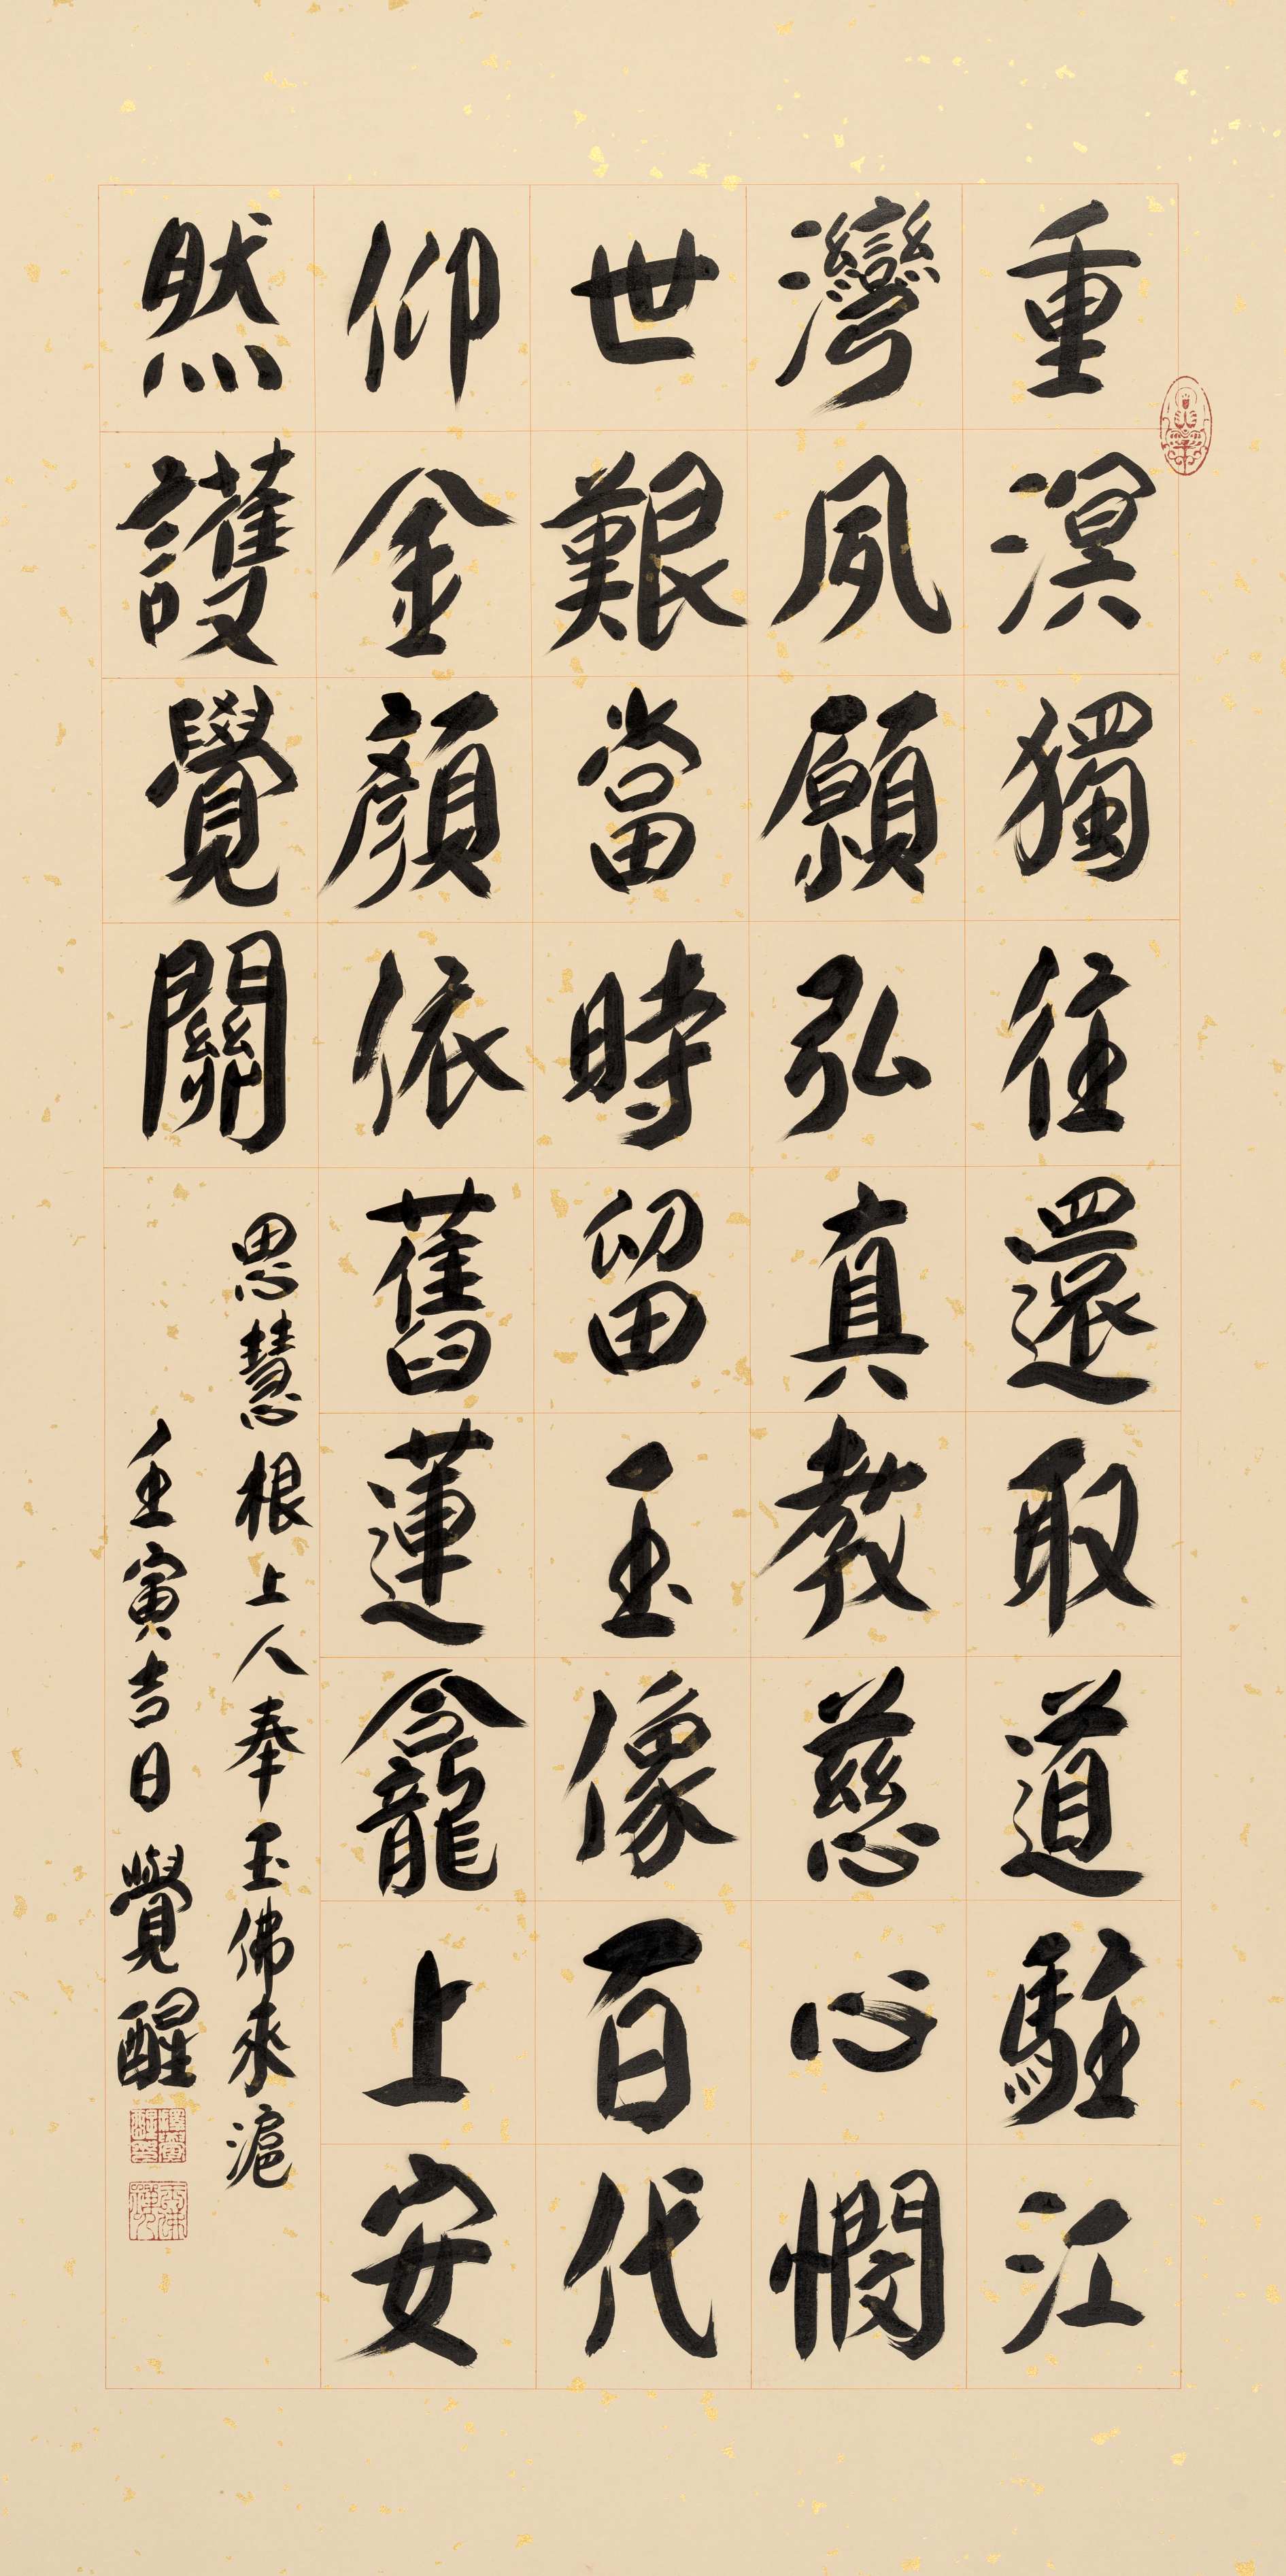 重溟獨往還取道駐江
灣夙願弘真教慈心憫
世艱當時留玉像百代
仰金顏依舊蓮龕上安
然護覺關
思慧根上人奉玉佛來滬
壬寅吉日覺醒